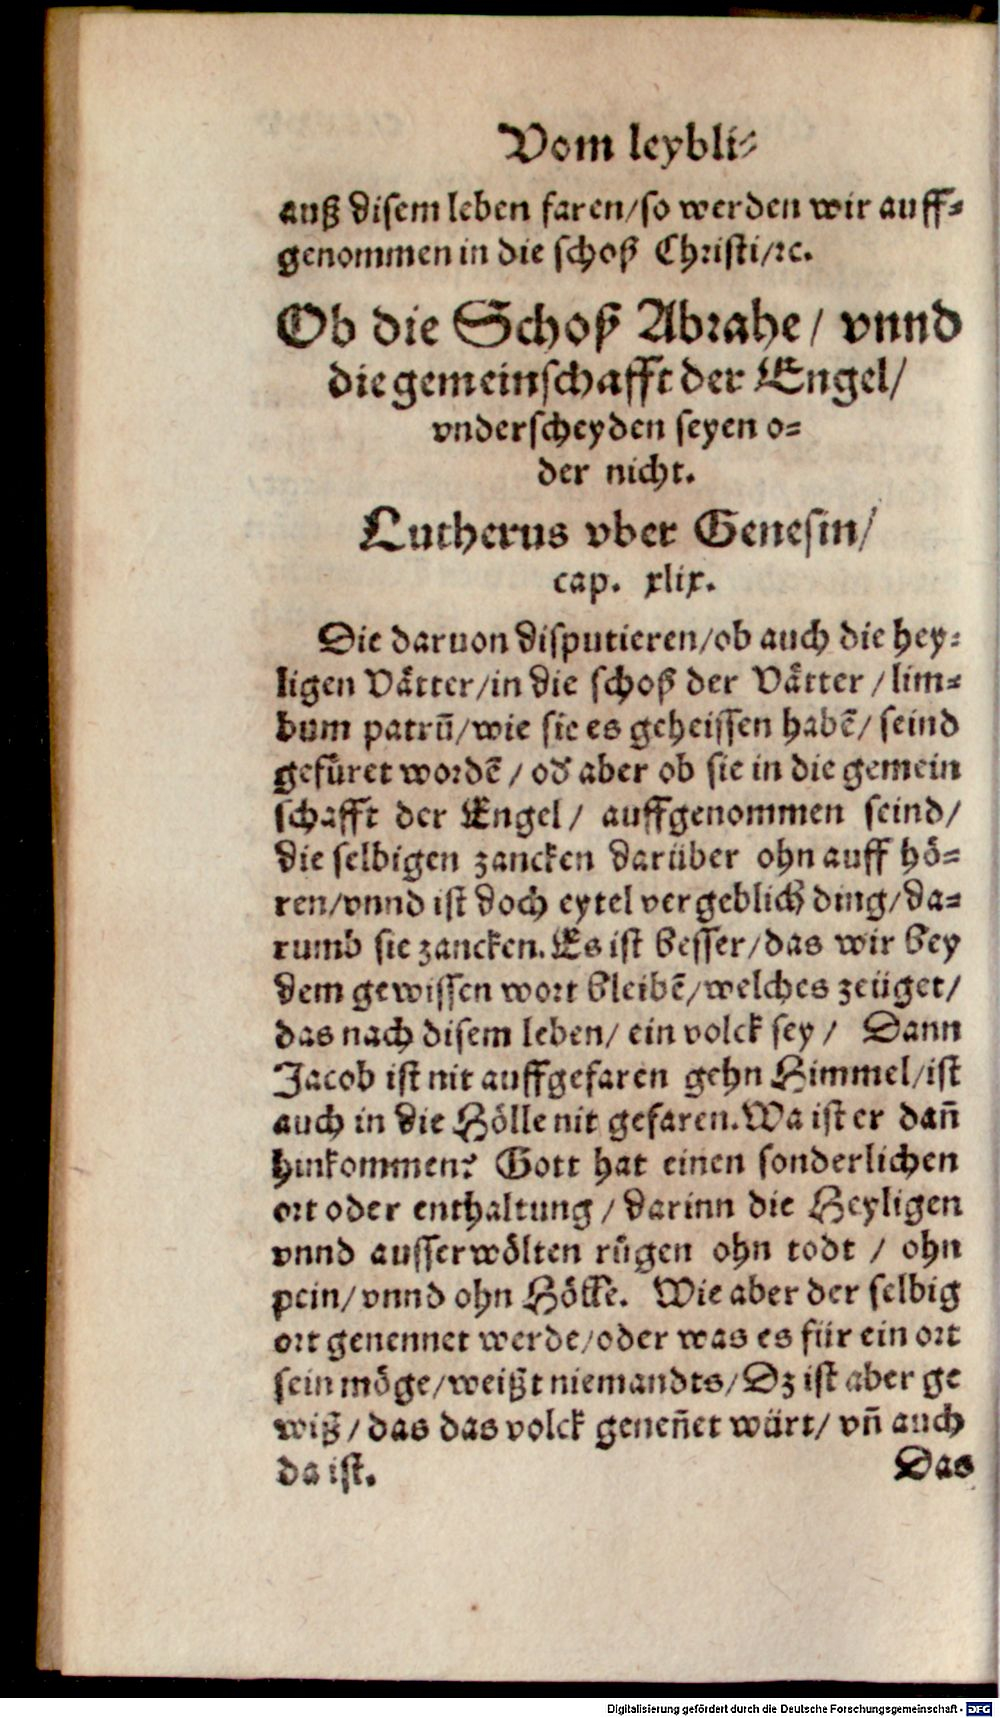 Vom leybli⸗
auß disem leben faren/so werden wir auff⸗
genommen in die schoß Christi/ꝛc.
Ob die Schoß Abrahe/ vnnd
die gemeinschafft der Engel/
vnderscheyden seyen o⸗
der nicht.
Lutherus vber Genesin/
cap. xlix.
Die daruon disputieren/ob auch die hey⸗
ligen Vätter/in die schoß der Vätter/lim⸗
bum patrū/wie sie es geheissen habē/ seind
gefüret wordē/ od̕ aber ob sie in die gemein
schafft der Engel/ auffgenommen seind/
die selbigen zancken darüber ohn auff hö⸗
ren/vnnd ist doch eytel vergeblich ding/da⸗
rumb sie zancken. Es ist besser/das wir bey
dem gewissen wort bleibē/welches zeüget/
das nach disem leben/ ein volck sey/ Dann
Jacob ist nit auffgefaren gehn Himmel/ist
auch in die Hölle nit gefaren. Wa ist er dañ
hinkommen? Gott hat einen sonderlichen
ort oder enthaltung/darinn die Heyligen
vnnd ausserwölten rügen ohn todt/ ohn
pein/vnnd ohn Hölle. Wie aber der selbig
ort genennet werde/oder was es für ein ort
sein möge/weißt niemandts/Dz ist aber ge
wiß/das das volck geneñet würt/ vñ auch
da ist. Das
Digitalisierung gefördert durch die Deutsche Forschungsgemeinschaft - DFG